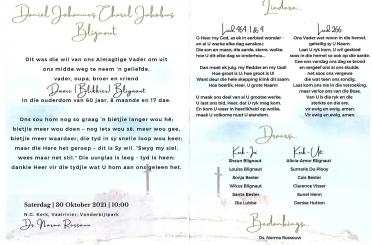 Daniel Johannes Charel Jakobus
Blignaut
Dit was die wil van ons Almagtige Vader om uit
ons midde weg te neem 'n geliefde,
vader, oupa, broer en vriend
Danie (Blokkies) Blignaut
in die ouderdom van 60 jaar, 8 maande en 17 dae.
Ons sou hom nog so graag 'n bietjie langer wou hê;
bietjie meer wou doen - nog iets wou sê, meer wou gee,
bietjie meer waardeer, die tyd is so snelle loop wou keer;
maar die Here het geroep - dit is Sy wil. "Swyg my siel,
wees maar net stil." Die uurglas is leeg - tyd is heen;
dankie Heer vir die tydjie wat U hom aan ons geleen het.
Saterdag | 30 Oktober 2021 | 10:00
N.G. Kerk, Vaalrivier, Vanderbijlpark
Ds. Norma Rossouw
Liedere...
Lied 464: 1 & 4
O Heer my God, as ek in eerbied wonder -
en al U werke elke dag aanskou:
Die son en maan, die aarde, sterre, wolke,
hoe U dit elke dag so onderhou...
Dan moet ek juig, my Redder en my God!
Hoe groot is U, hoe groot is U!
Want deur die hele skepping klink dit saam:
Hoe heerlik, Heer, U grote Naam!
U maak ons deel van al U grootse werke.
U laat ons bid, Heer, dat U ryk mag kom.
En kom U weer in heerlikheid op wolke,
maak U volkome nuut U eiendom.
Lied 266
Ons Vader wat woon in die hemel,
geheilig is U Naam.
Laat U ryk kom, U wil geskied
soos in die hemel so ook op die aarde.
Gee ons vandag ons dag se brood
en vergeef ons al ons skulde
net soos ons vergewe
die wat teen ons sondig.
Laat kom ons nie in die versoeking,
maar verlos ons van die Bose.
Van U is die ryk en die
sterkte en die eer,
vir ewig en ewig, amen.
Vir ewig en ewig, amen.
Draers...
Kerk-In
Shaun Blignaut
Louise Blignaut
Sonja Bester
Wikus Blignaut
Santa Bester
Ria Lubbe
Kerk-Uit
Alicia-Amor Blignaut
Sumarie Du Plooy
Cois Bester
Clarence Visser
Sunel Henn
Denise Hutten
Bedankings...
Ds. Norma Rossouw